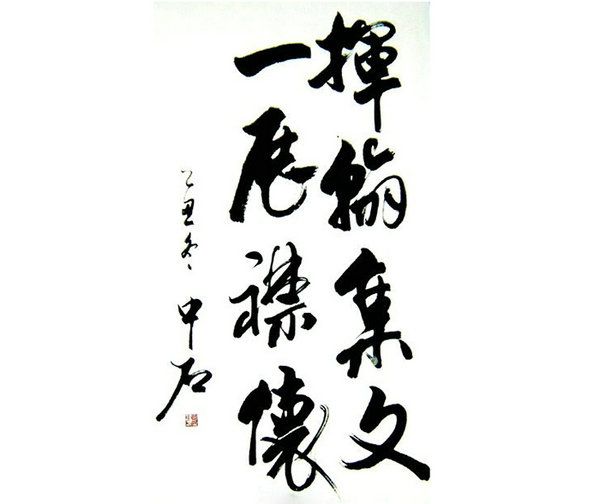 揮翰集文
一展襟懷
己丑冬 中石